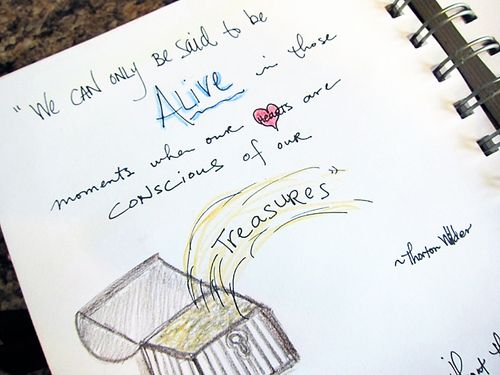 "We can only be said to be
ALive in those
moments when our hearts are
conscious of our
Treasures"
~Thorton Wilder